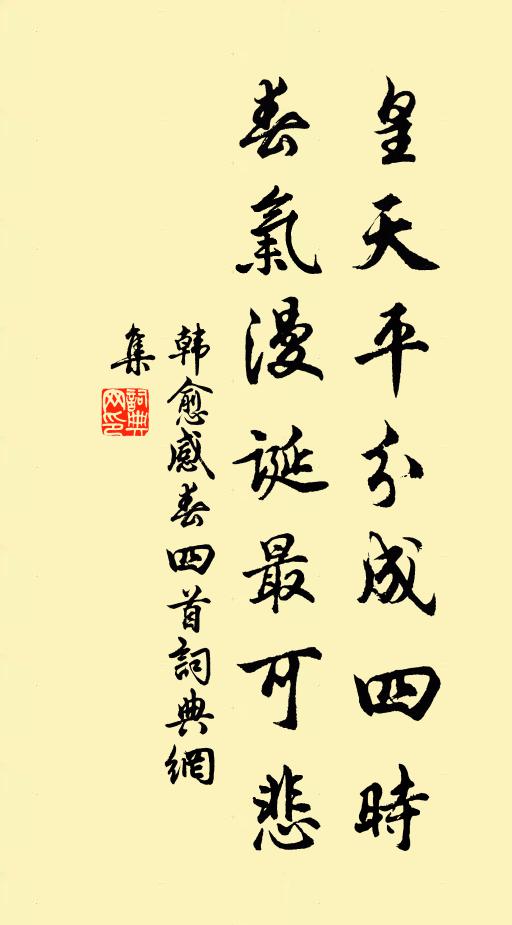 皇天平分成四時
春氣漫誕最可悲
韩愈感春四首詞典網
集
詞典
网印